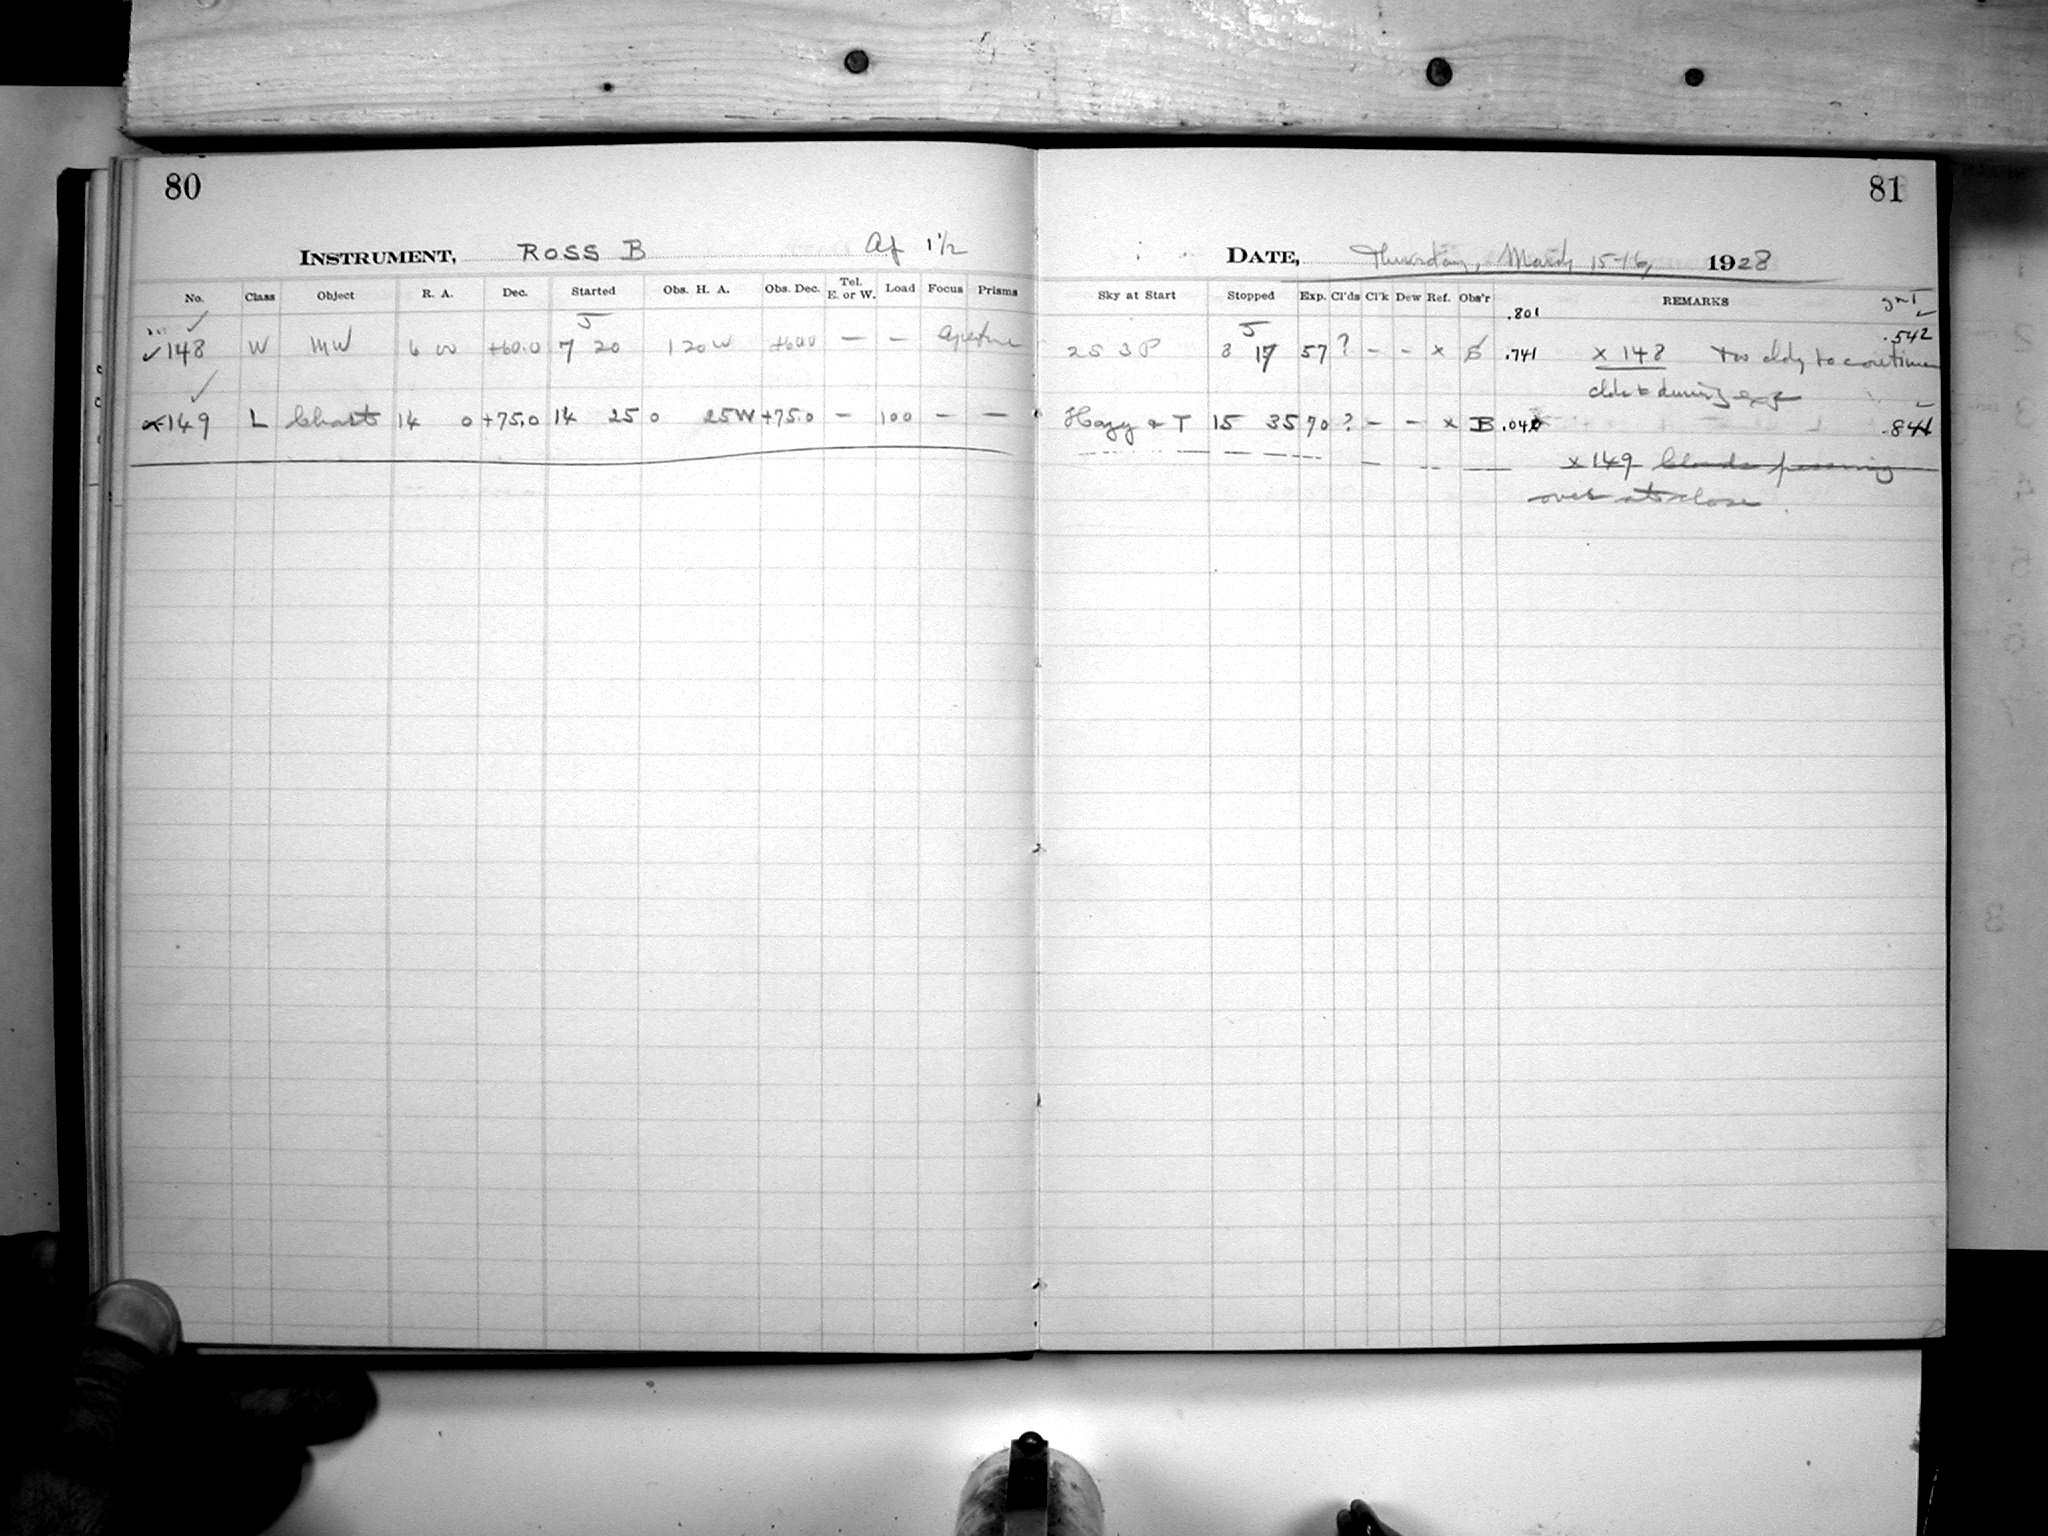 80
INSTRUMENT, ROSS B Ap 1 1/2
No. Class Object R. A. Dec. Started Obs. H. A. Obs. Dec. Tel. E. or W. Load Focus Prisms
✓148 W MW 6 00 +60.0 7 20 1 20 W +60.0 — — Aperture
149 L Chart 14 0 +75.0 14 25 0 25W +75.0 — 100 — —
81
DATE, Thursday, March 15-16, 1928
Sky at Start Stopped Exp. Cl'ds Cl'k Dew Ref. Obs'r REMARKS
.801
.542
2S 3P 8 17 57 ? - - x .741 x 148 too cldy to continue
clds during exp
Hazy & T 15 35 70 ? - - x B .04 .84
x 149 Clouds passing
over at close